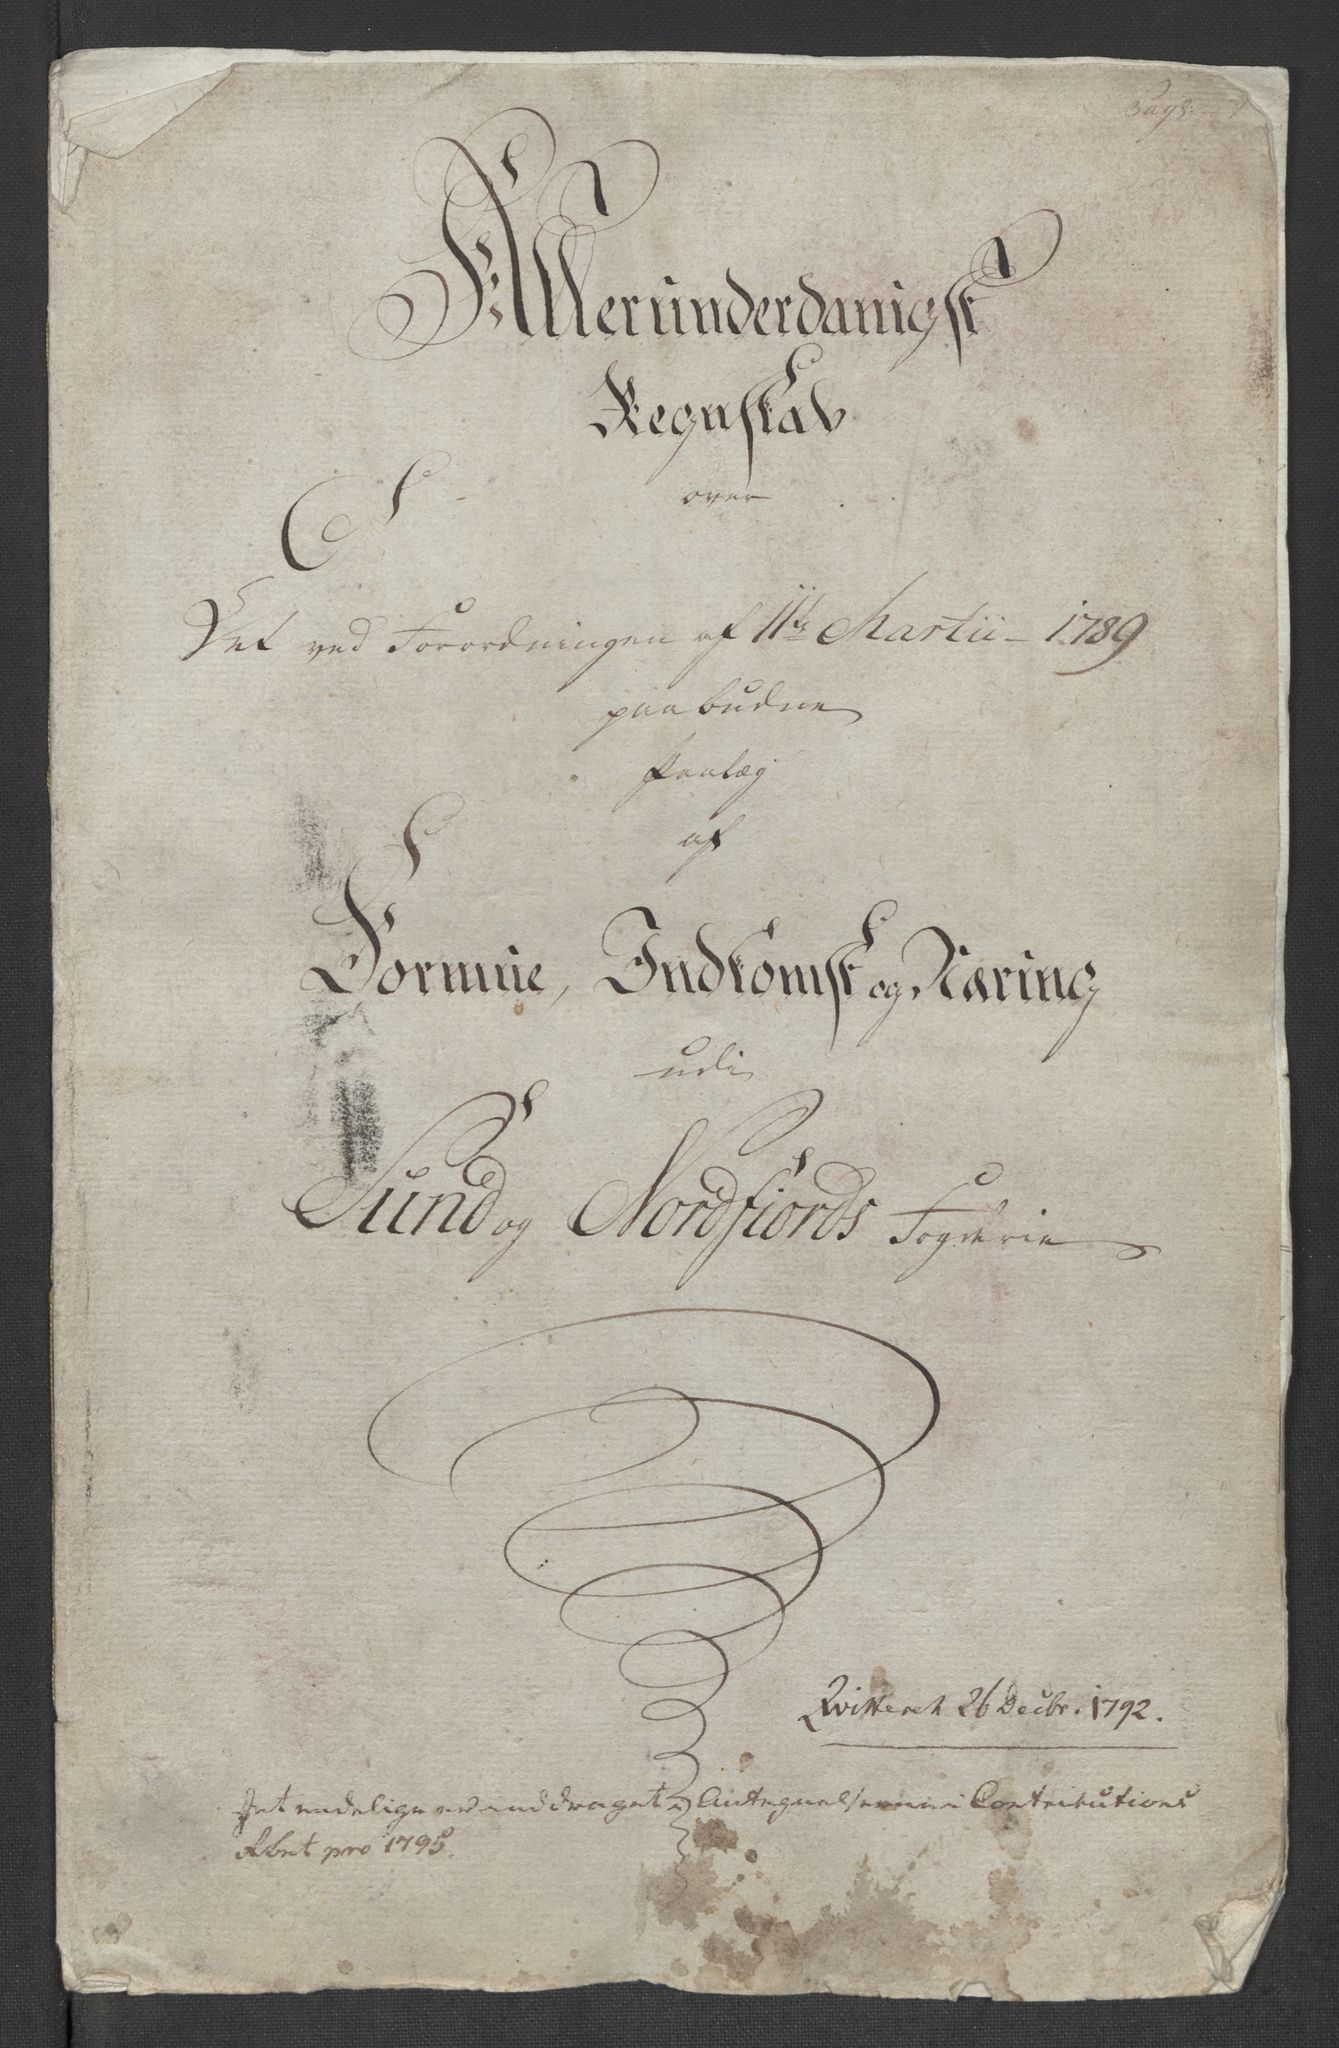 Allerunderdanigst
Regnskab
over
Det ved Forordningen af 11te Martii 1789
paabudne
Paalæg
af
Formue, Indkomst og Næring
udi
Sund og Nordfiords Fogderie
Qvitteret 26 Decbr. 1792.
Det endelige er inddraget i Antegnelserne i Contributions
Rbnt pro 1795.